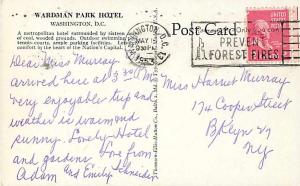 WARDMAN PARK HOTEL
WASHINGTON, D.C.
A metropolitan hotel surrounded by sixteen
of cool, wooded grounds. Outdoor swimming
tennis courts, ample parking facilities.
comfort in the heart of the Nation's Capital.
Dear Miss Murray
arrived here at 3
very enjoyable trip and
weather is warm and
sunny. Lovely Hotel
and gardens. Love from
Adam and Emily Schneider
Post Card
WASHINGTON, D.C.
MAY 15
PM
Only you can
PREVENT
FOREST FIRES
UNITED STATES
Miss Harriet Murray
174 Cooper Street
Bklyn 27
NY